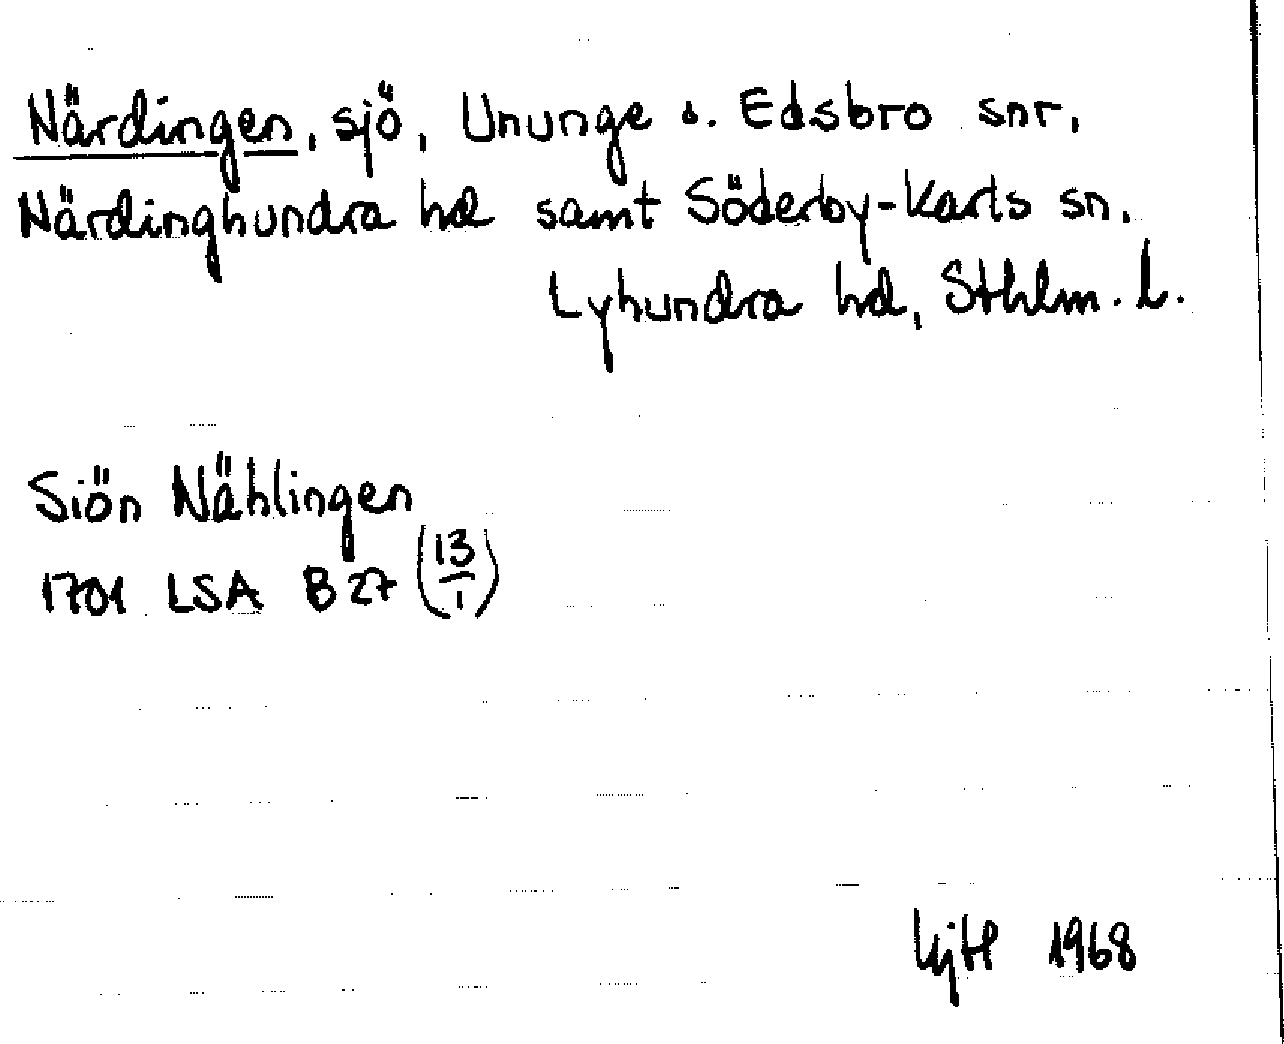 Närdingen, sjö, Ununge o. Edsbro snr,
Närdinghundra hd samt Söderby-Karls sn.
Lyhundra hd, Sthlm. l.
Siön Nählingen
1701 LSA B 27 (13/1)
1968